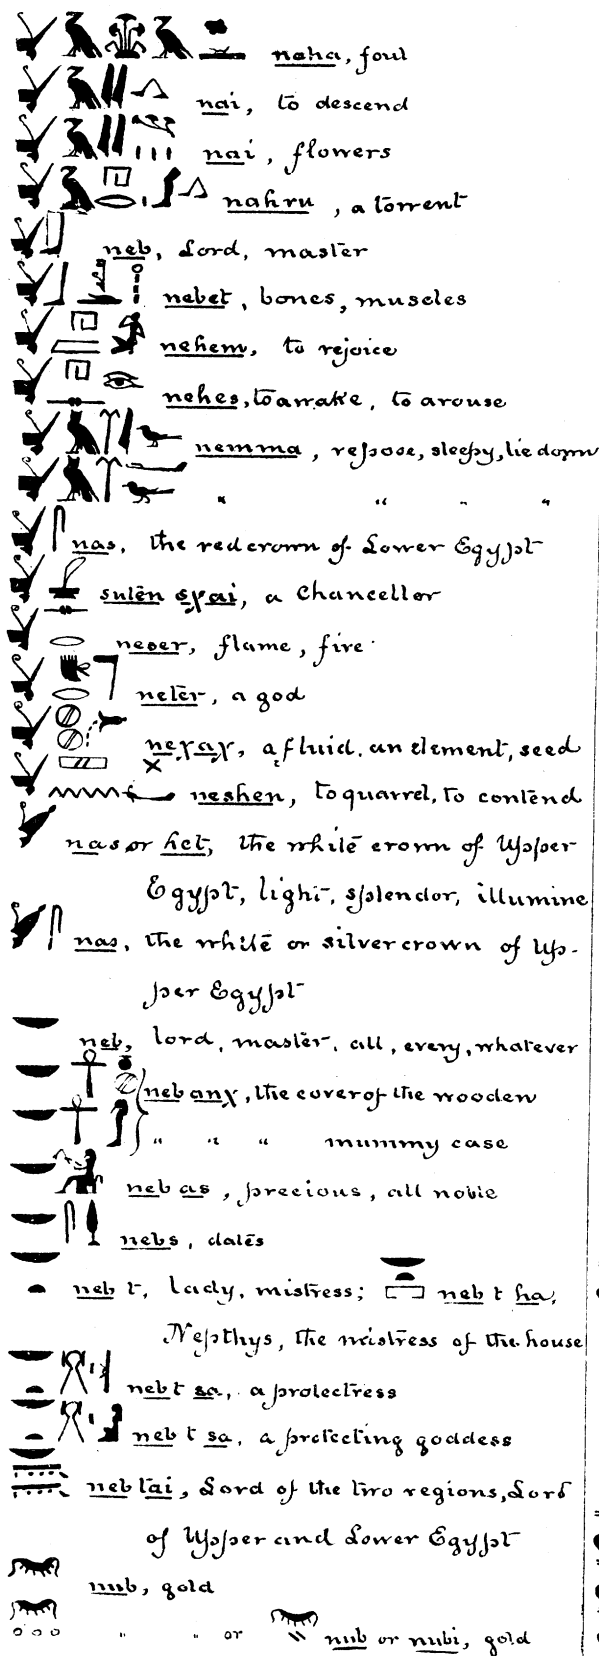 naha, foul
nai, to descend
nai, flowers
nahru, a torrent
neb, Lord, master
nebet, bones, muscles
nehem, to rejoice
nehes, to awake, to arouse
nemma, repose, sleepy, lie down
" " " "
nas, the red crown of Lower Egypt
suten sχai, a Chancellor
neser, flame, fire
neter, a god
neχaχ, a fluid, an element, seed
x
neshen, to quarrel, to contend
nas or het, the white crown of Upper
Egypt, light, splendor, illumine
nas, the white or silver crown of Up-
per Egypt
neb, lord, master, all, every, whatever
neb anχ, the cover of the wooden
" " " mummy case
neb as, precious, all noble
nebs, dates
neb t, lady, mistress; neb t ha,
Nepthys, the mistress of the house
neb t sa, a protectress
neb t sa, a protecting goddess
neb tai, Lord of the two regions, Lord
of Upper and Lower Egypt
nub, gold
" " or nub or nubi, gold